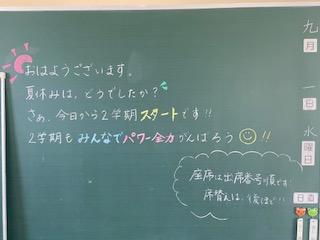 おはようございます。
夏休みは、どうでしたか？
さぁ、今日から2学期スタートです!!
2学期もみんなでパワー全力がんばろう!!
座席は出席番号順です
席替えは、後ほど!!
九月一日水曜日
日直